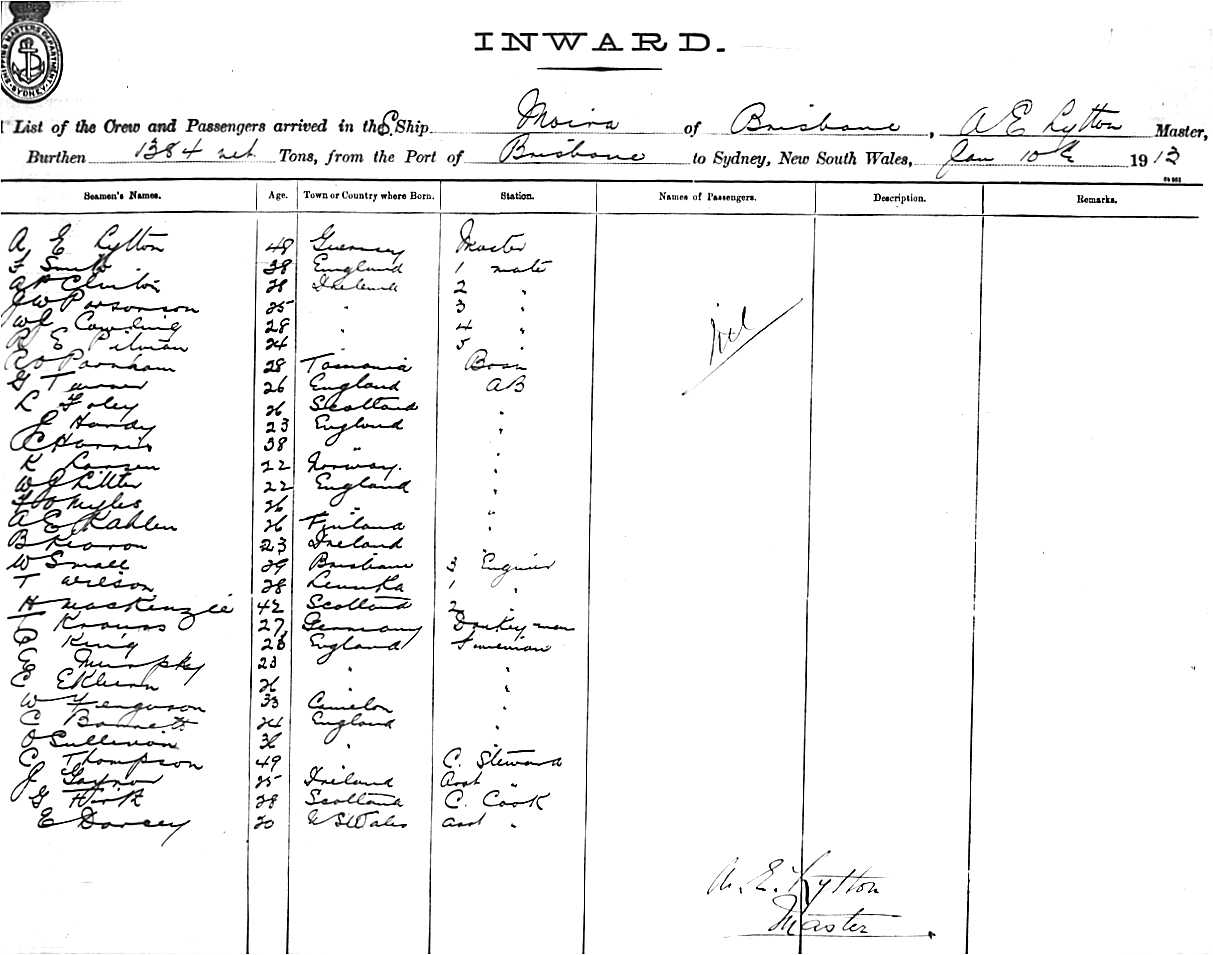 SHIPPING MASTERS DEPARTMENT SYDNEY
INWARD.
List of the Crew and Passengers arrived in the S Ship Moira of Brisbane, A E Lytton Master,
Burthen 1384 net Tons, from the Port of Brisbane to Sydney, New South Wales, Jan 10th 1913
Seamen's Names. Age. Town or Country where Born. Station. Names of Passengers. Description. Remarks.
A E Lytton 48 Guernsey Master
Smith 38 England 1 mate
Clinton 28 Ireland 2 "
J W Parsonson 25 " 3 "
W J Cowling 28 " 4 "
R E Pitman 24 " 5 "
Nil
Parnham 28 Tasmania Bosn
G Turner 26 England AB
L Foley 26 Scotland "
J Hardy 23 England "
C Harris 38 " "
K Larsen 22 Norway. "
W J Litter 22 England "
Myles 26 " "
A E Kahlen 26 Finland "
B Kearon 23 Ireland "
W Small 29 Brisbane 3 Engineer
T Wilson 28 1 "
H Mackenzie 42 Scotland 2 "
T Krauss 27 Germany Donkeyman
King 28 England Fireman
Murphy 23 " "
E 26 " "
W Ferguson 33 "
C Bannett 24 England "
O Sullivan 36 " "
C Thompson 49 C. Steward
J Gaynor 25 Ireland Asst "
G Kirk 28 Scotland C. Cook
E Dorsey 20 N S Wales Asst "
A. E. Lytton
Master